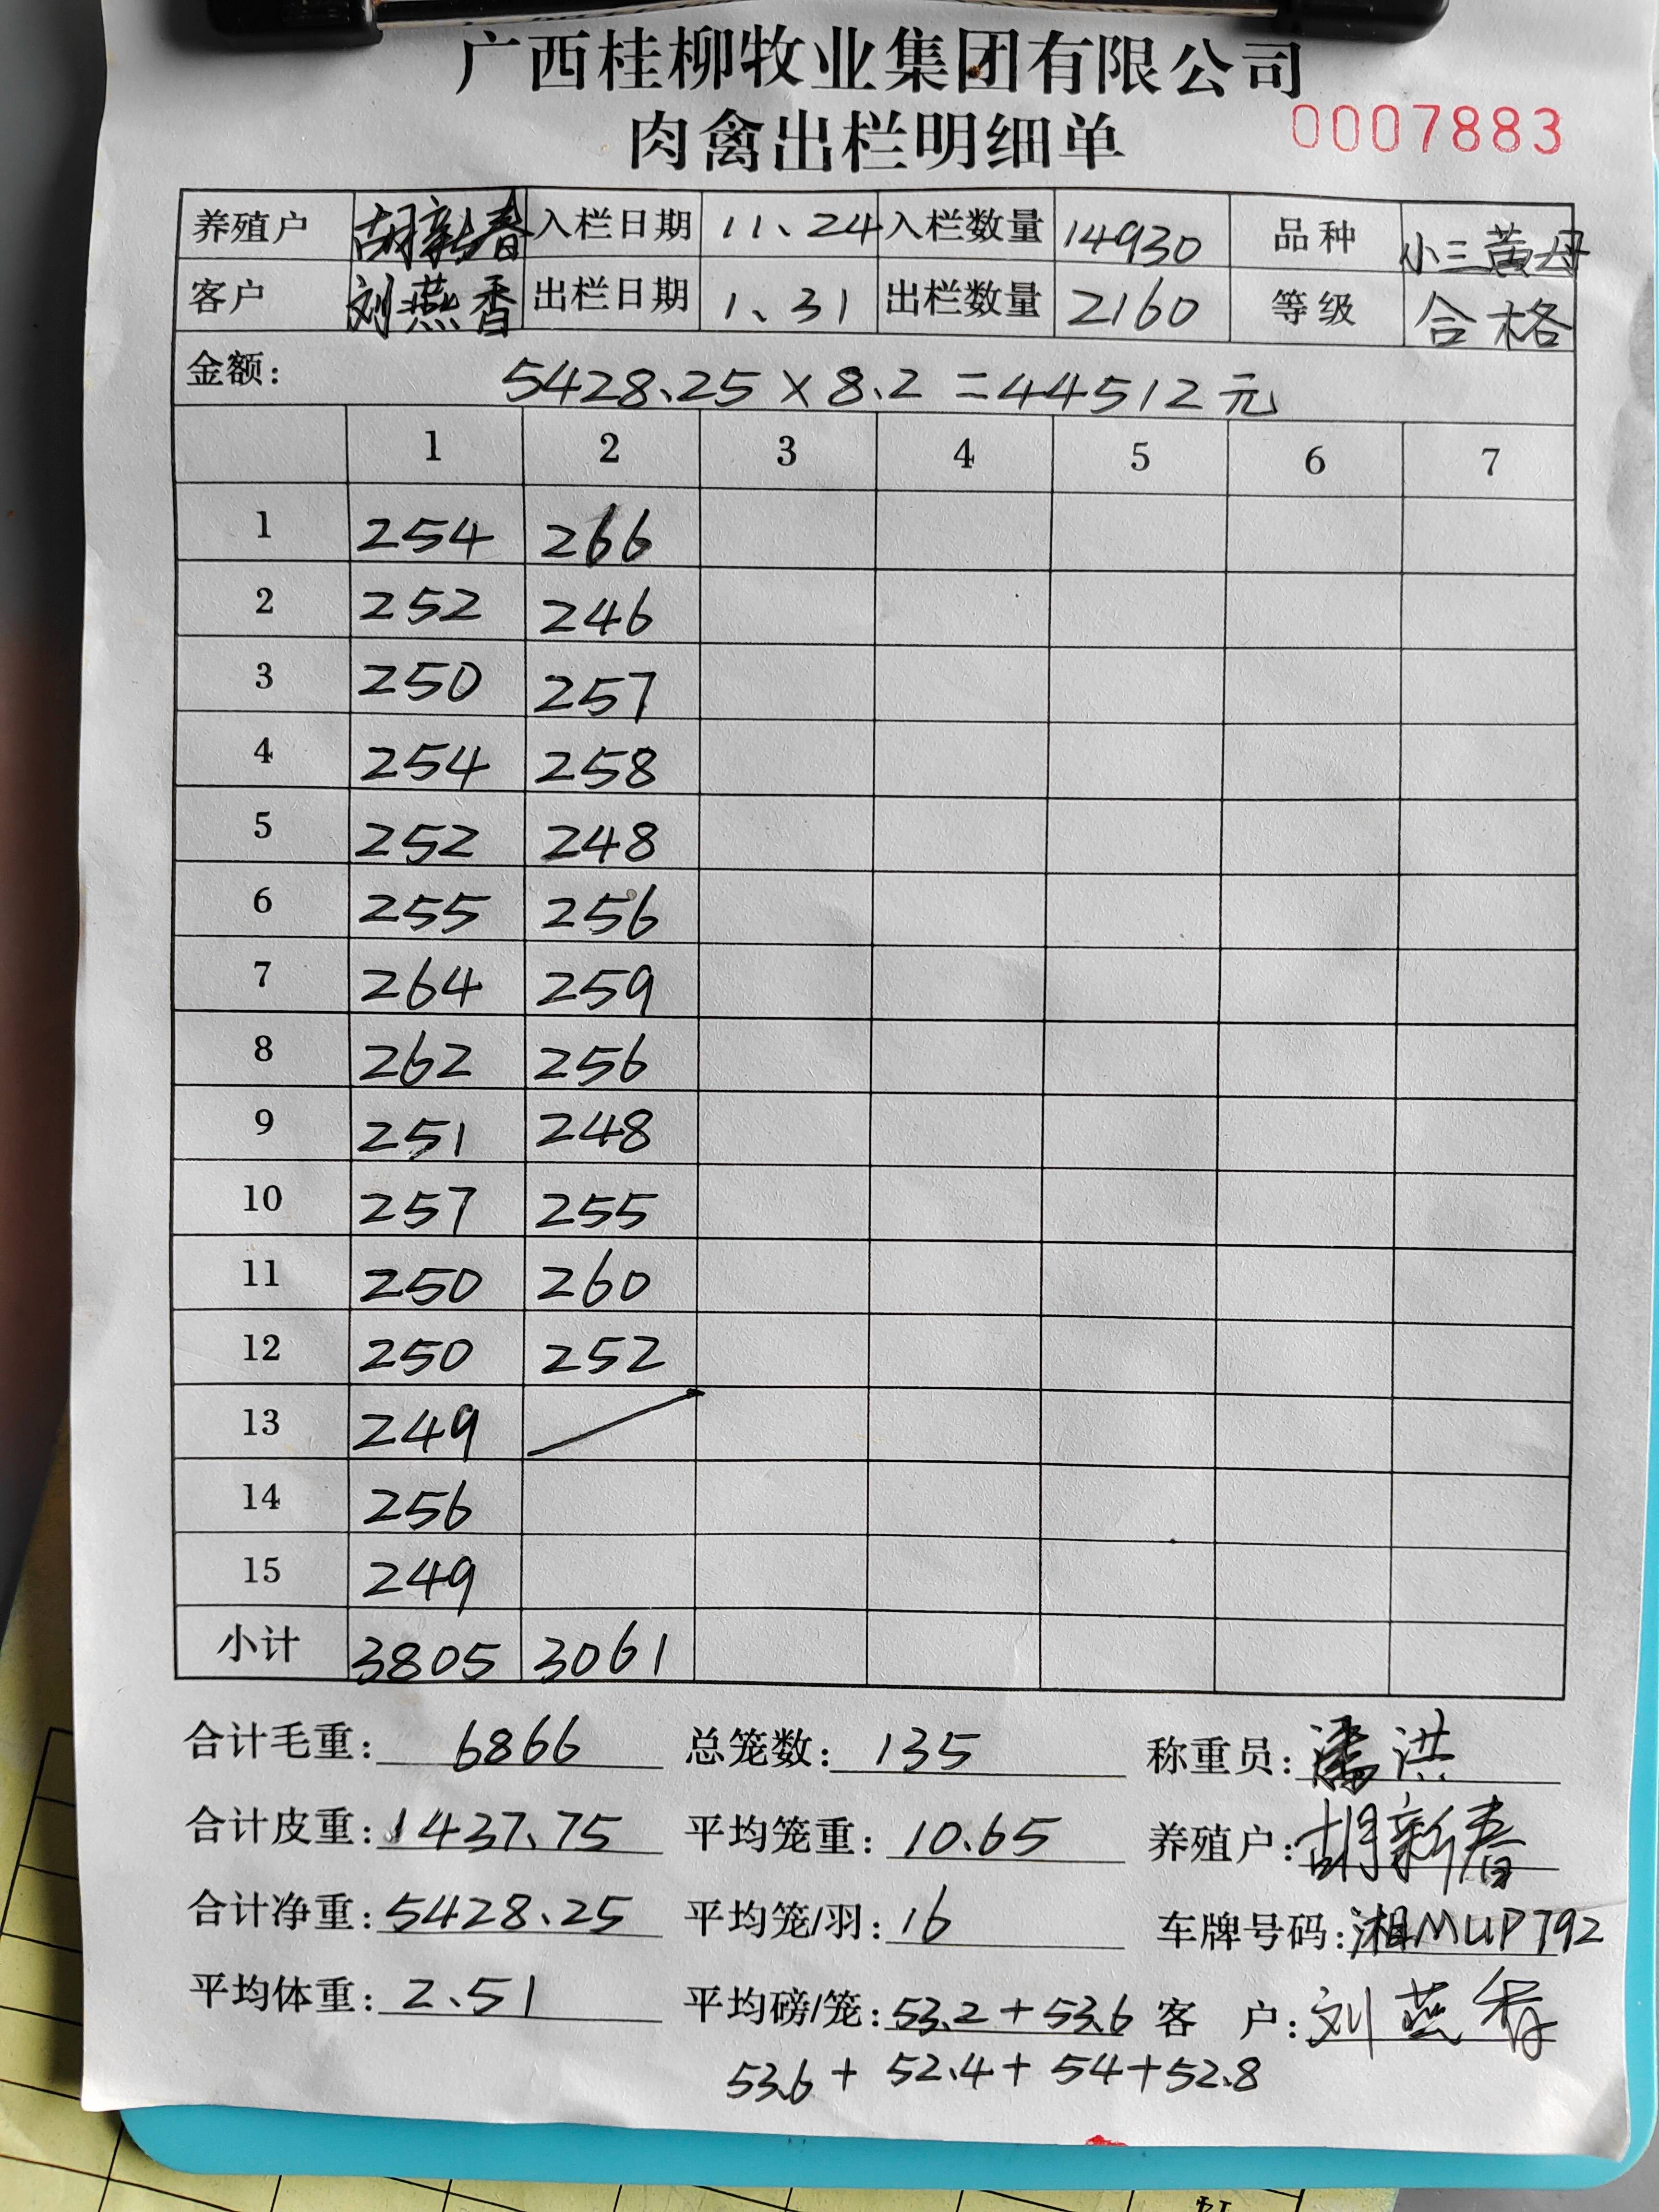 广西桂柳牧业集团有限公司
肉禽出栏明细单 0007883
养殖户 胡新春 入栏日期 11、24 入栏数量 14930 品种 小三黄母
客户 刘燕香 出栏日期 1、31 出栏数量 2160 等级 合格
金额: 5428.25×8.2=44512元
1 2 3 4 5 6 7
1 254 266
2 252 246
3 250 257
4 254 258
5 252 248
6 255 256
7 264 259
8 262 256
9 251 248
10 257 255
11 250 260
12 250 252
13 249
14 256
15 249
小计 3805 3061
合计毛重: 6866 总笼数: 135 称重员: 潘洪
合计皮重: 1437.75 平均笼重: 10.65 养殖户: 胡新春
合计净重: 5428.25 平均笼/羽: 16 车牌号码: 湘MUP792
平均体重: 2.51 平均磅/笼: 53.2+53.6 客 户: 刘燕香
53.6+52.4+54+52.8